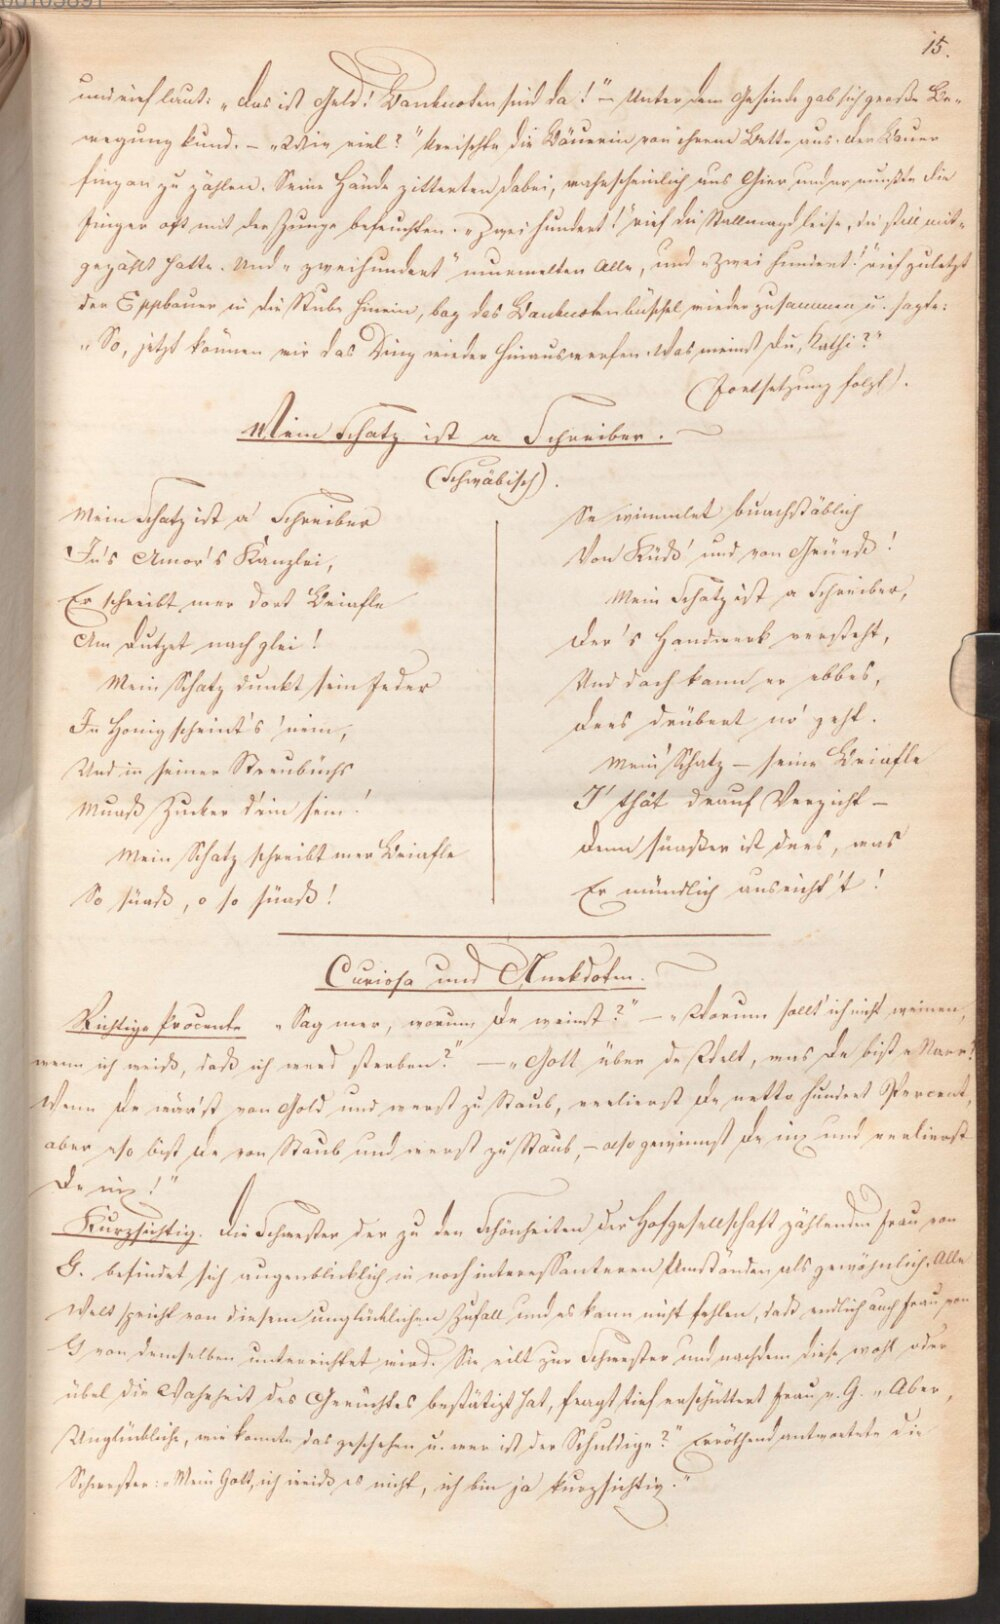 15.
und rief laut: „das ist Geld! Banknoten sind da!" – Unter dem Gesinde gab sich große Be-
wegung kund. – „Wie viel?" kreischte die Bäuerin von ihrem Bette aus. Der Bauer
fing an zu zählen. Seine Hände zitterten dabei, wahrscheinlich aus Gier und er mußte die
Finger oft mit der Zunge befeuchten. „Zwei hundert!" rief die Stallmagd leise, die still mit-
gezählt hatte. Und „zweihundert" murmelten Alle, und „Zwei hundert!" rief zuletzt
der Eppbauer in die Stube hinein, bog das Banknotenbüschel wieder zusammen u. sagte:
„So, jetzt können wir das Ding wieder hinauswerfen. Was meinst du, Kathi?"
(Fortsetzung folgt).
Mein Schatz ist a Schreiber.
(Schwäbisch).
Mein Schatz ist a' Schreiber
In's Amor's Kanzlei,
Er schreibt mer dort Briafle
Am Dutzet nach glei!
Mein Schatz dunkt sein Feder
In Honig scheint's 'nein,
Und in seiner Streubüchs
Muaß Zucker d'rin sein!
Mein Schatz schreibt mer Briafle
So süaß, o so süaß!
Se wimmlet buachstäblich
Von Küß' und von Grüaß!
Mein Schatz ist a Schreiber,
Der's Handwerk versteht,
Und doch kann er ebbes,
Dees drübert no' geht.
Mein Schatz – seine Briafle
I' thät drauf Verzicht –
Denn süaßer ist dees, was
Er mündlich ausricht't!
Curiosa und Anekdoten.
Richtige Procente „Sag mer, worum De weinst?" – „Worum sollt' ich nicht weinen,
wenn ich weiß, daß ich werd sterben?" – „Gott über de Welt, was De bist e Narr!
Wenn De wär'st von Gold und werst zu Staub, verlierst De netto hundert Percent,
aber eso bist De von Staub und werst zu Staub, – also gewinnst De nix und verlierst
De nix!"
Kurzsichtig. Die Schwester der zu den Schönheiten der Hofgesellschaft zählenden Frau von
G. befindet sich augenblicklich in noch interessanteren Umständen als gewöhnlich. Alle
Welt spricht von diesem unglücklichen Zufall und es kann nicht fehlen, daß endlich auch Frau von
G von demselben unterrichtet wird. Sie eilt zur Schwester und nachdem diese wohl oder
übel die Wahrheit des Gerüchtes bestätigt hat, fragt tief erschüttert Frau v. G. „Aber,
Unglückliche, wie konnte das geschehen u. wer ist der Schuldige?" Erröthend antwortete die
Schwester: „Mein Gott, ich weiß es nicht, ich bin ja kurzsichtig."